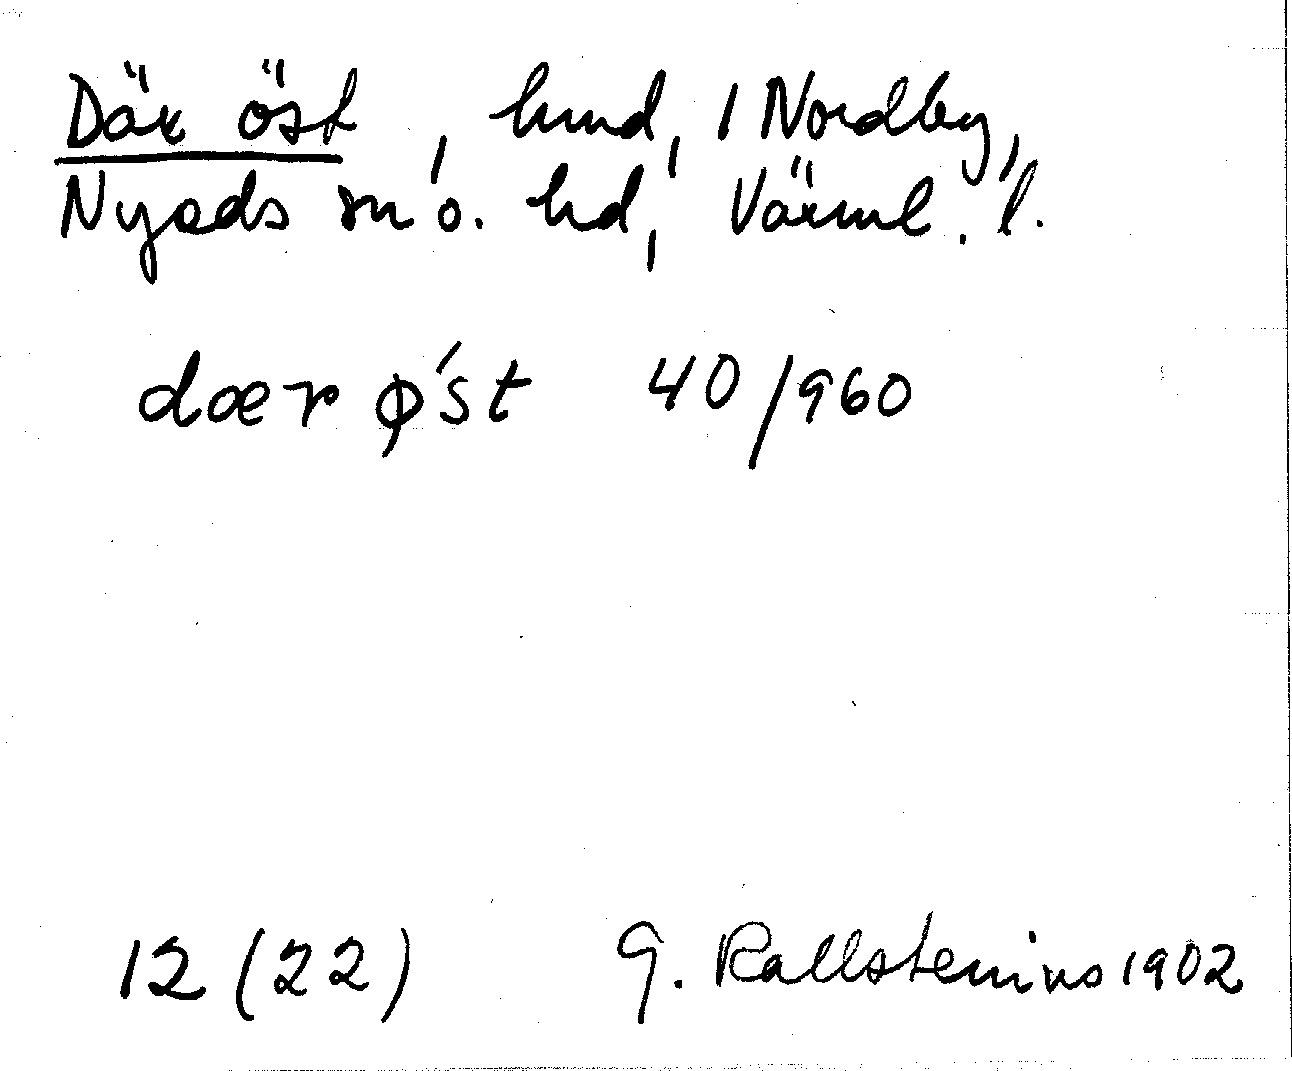 Där öst, lund, i Nordby,
Nyeds sn o. hd, Värml. l.
dær ǿst 40/960
12 (22) G. Kallstenius 1902